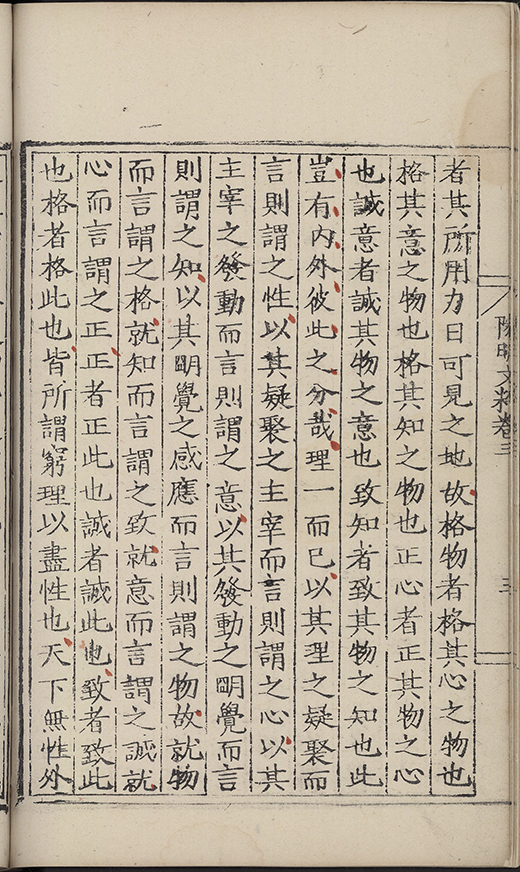 者其所用力日可見之地故格物者格其心之物也
格其意之物也格其知之物也正心者正其物之心
也誠意者誠其物之意也致知者致其物之知也此
豈有內外彼此之分哉理一而已以其理之凝聚而
言則謂之性以其凝聚之主宰而言則謂之心以其
主宰之發動而言則謂之意以其發動之明覺而言
則謂之知以其明覺之感應而言則謂之物故就物
而言謂之格就知而言謂之致就意而言謂之誠就
心而言謂之正正者正此也誠者誠此也致者致此
也格者格此也皆所謂窮理以盡性也天下無性外
陽明文粹卷三
三